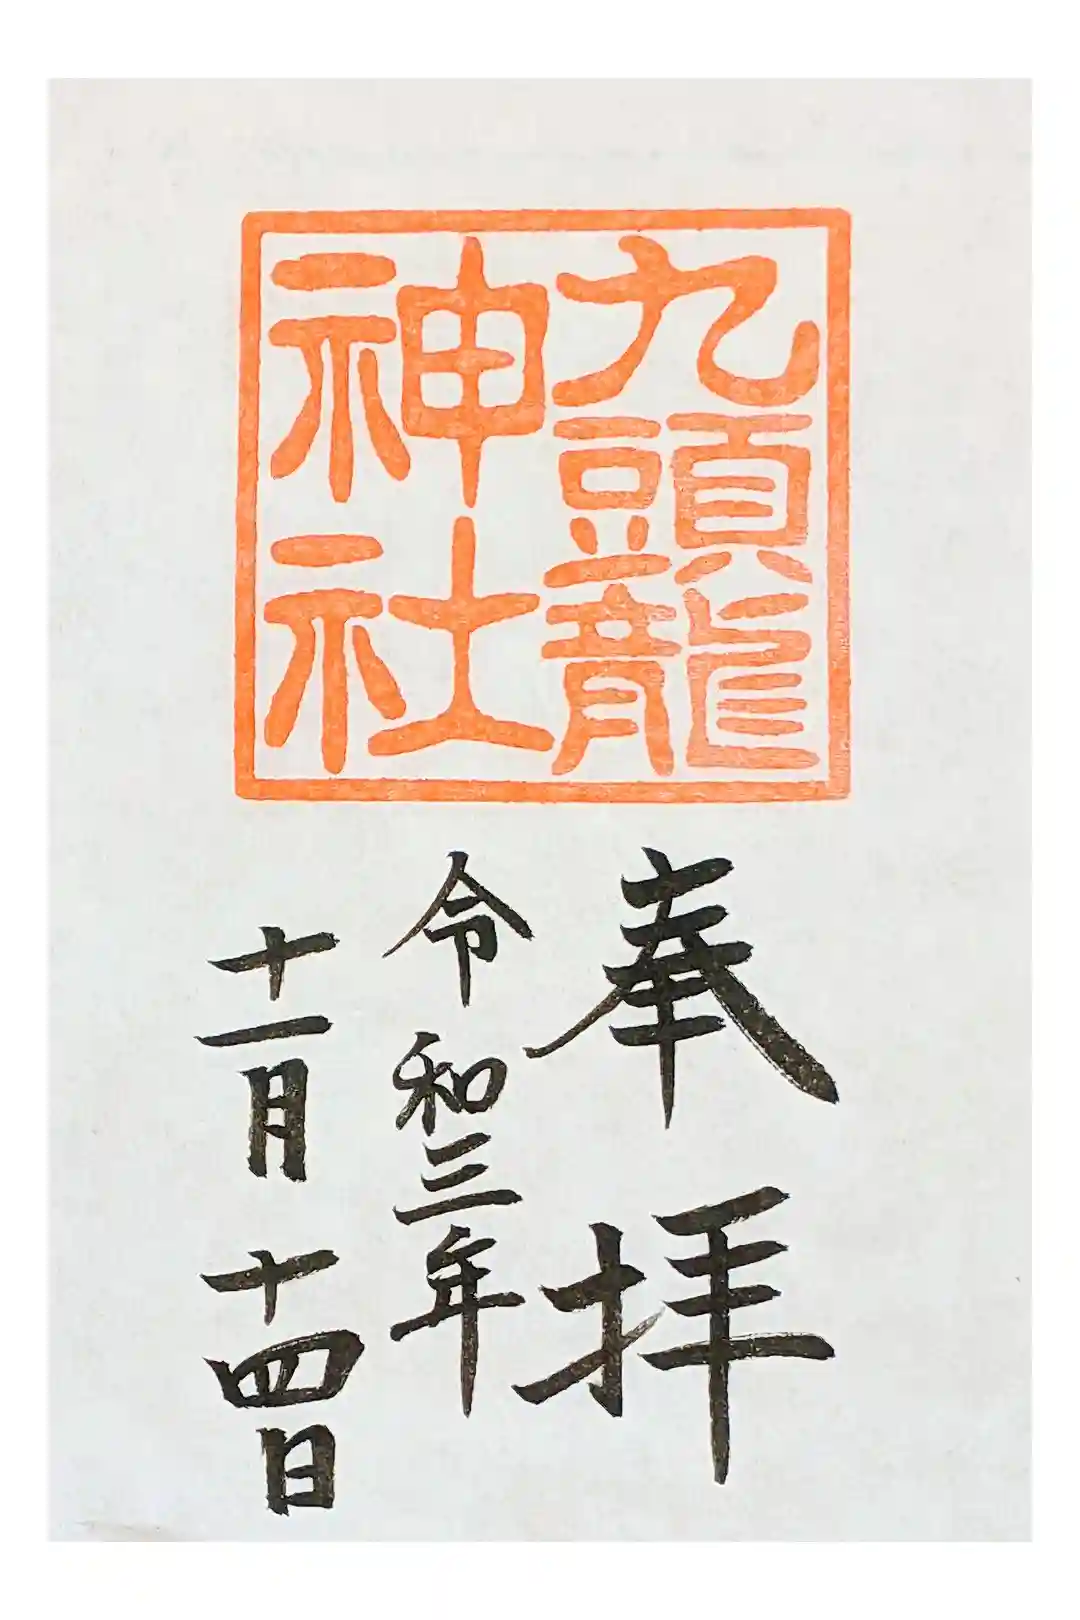 九頭龍
神社
奉拝
令和三年
十一月十四日